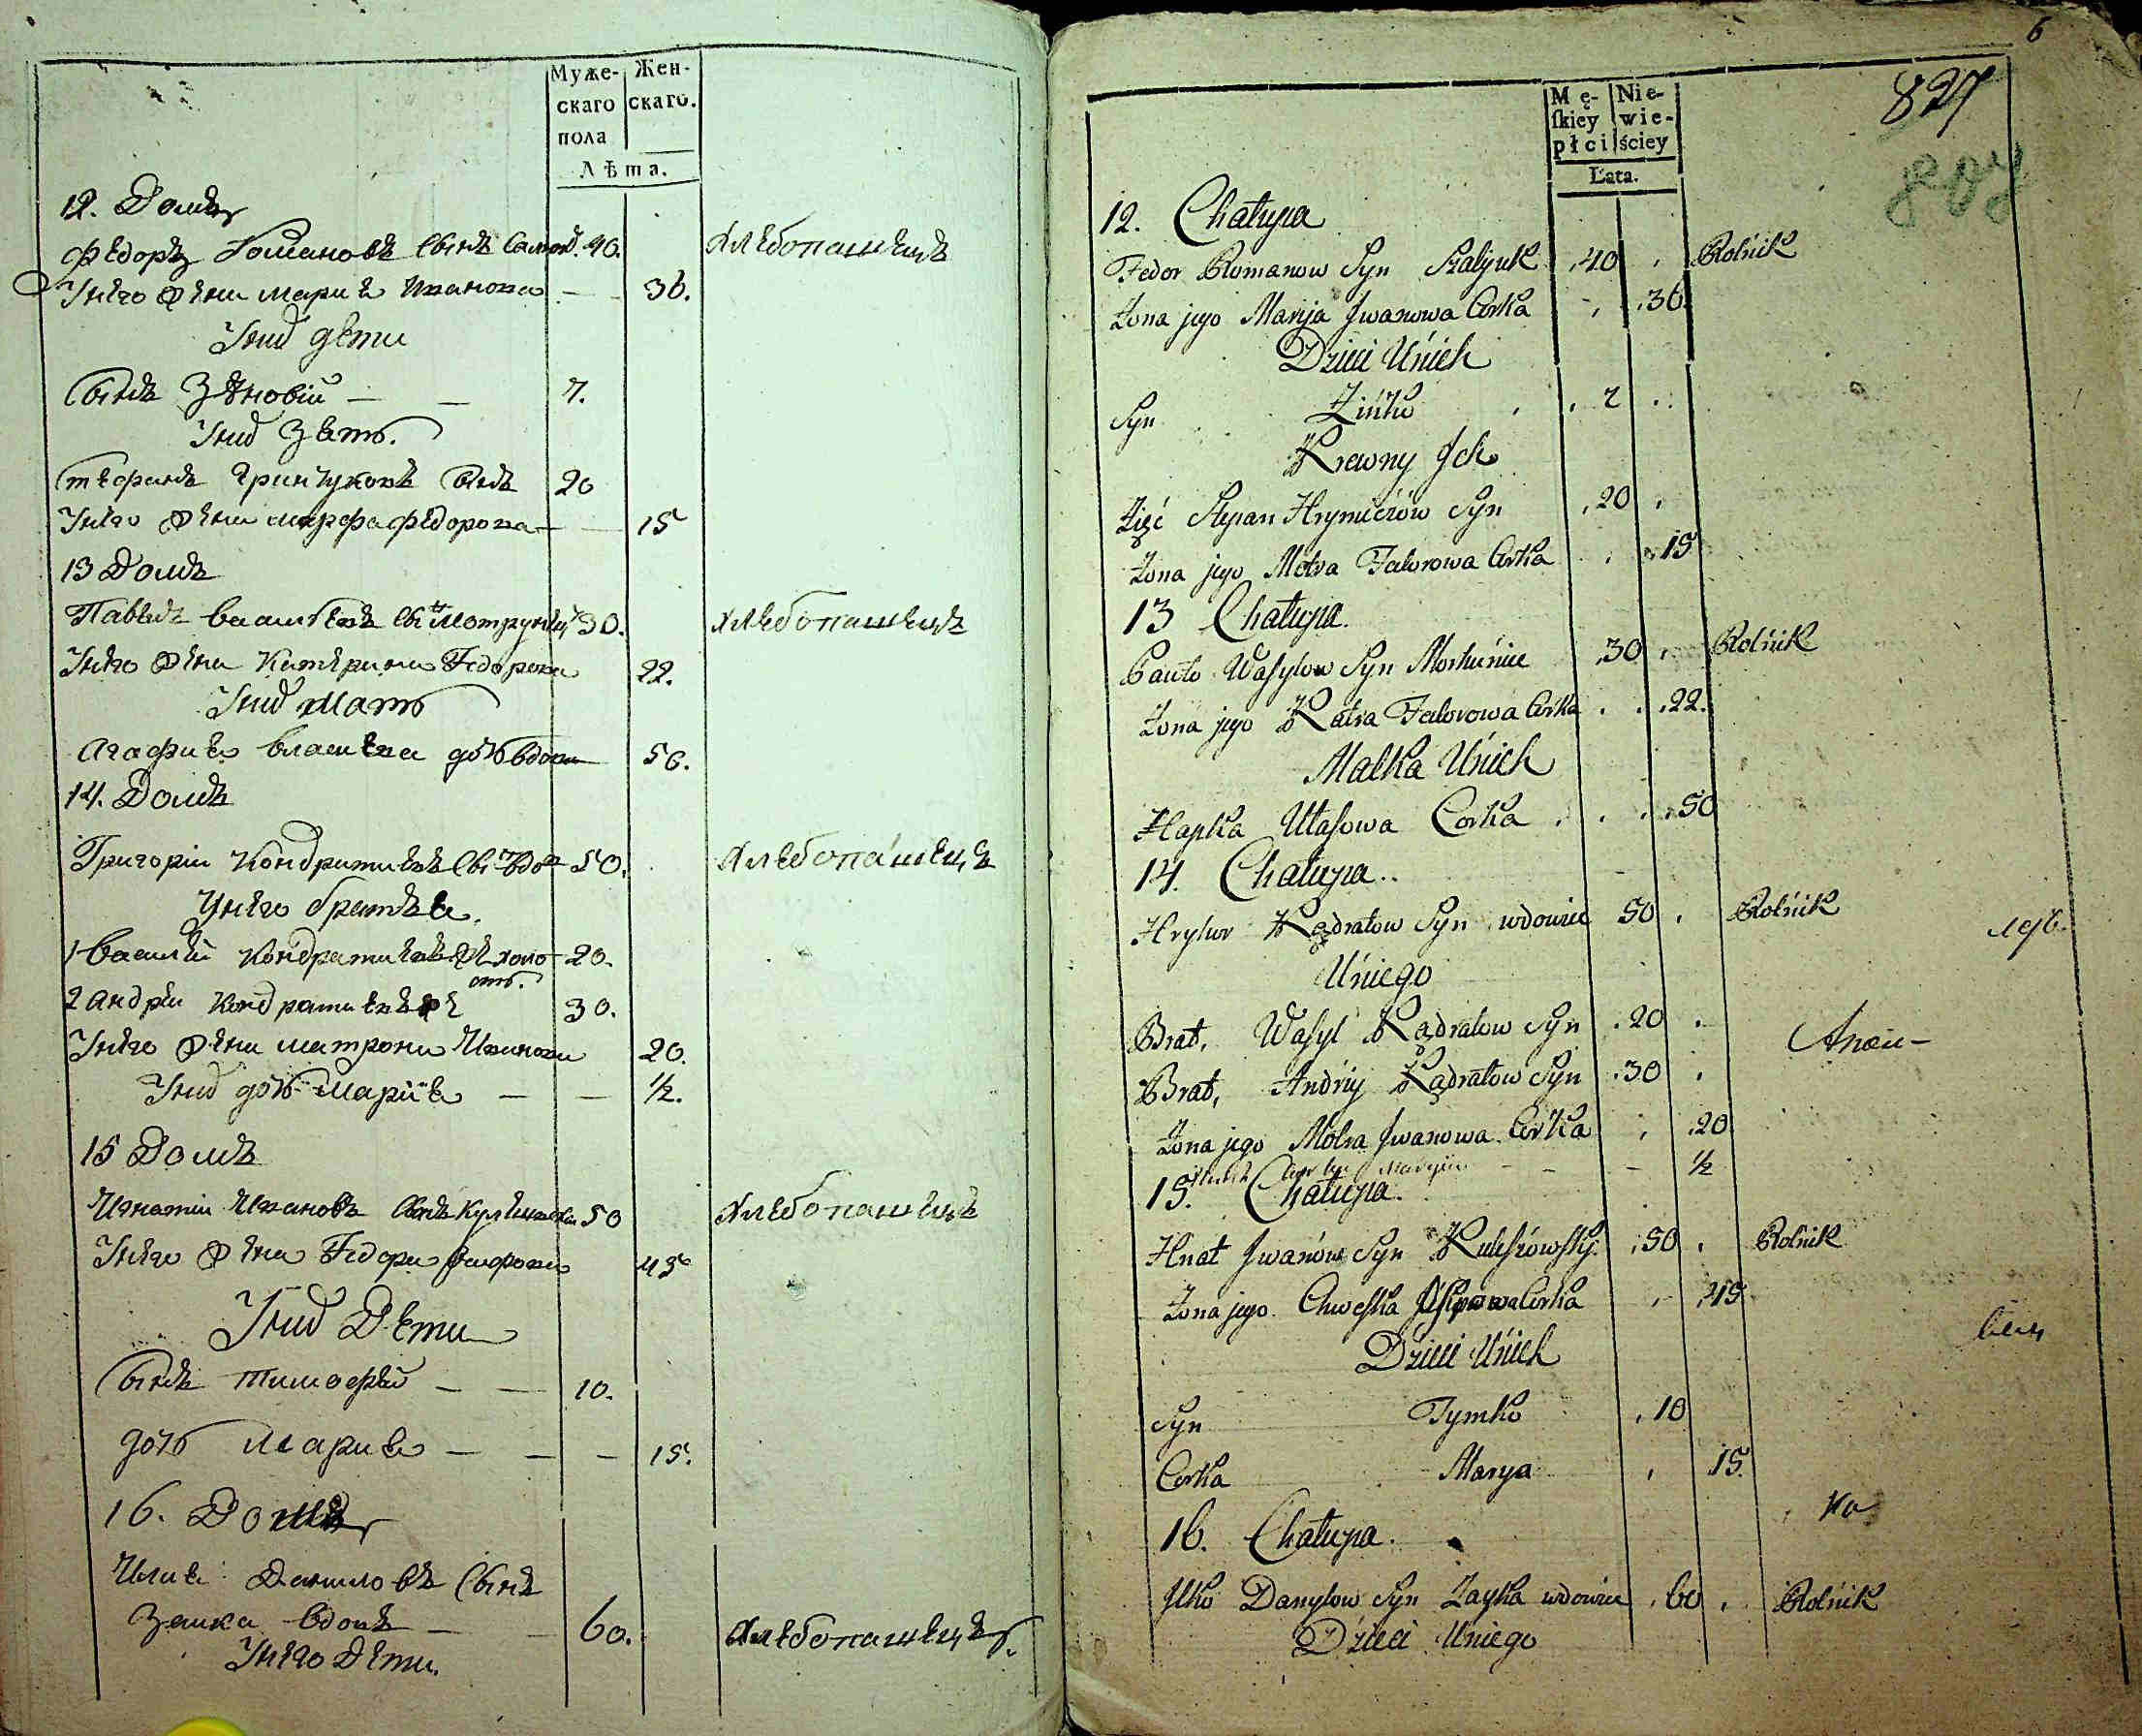 Муже- Жен-
скаго скаго.
пола
Лѣта.
12. Домъ
Федоръ Романовъ сынъ 40. хлѣбопашецъ
Унего жена Мария Иванова — 36.
Уних дѣти
Сынъ Зѣновій — — 7.
Уних зять.
Стефанъ Гринчуковъ сынъ 20
Унего жена Марфа Федорова — 15
13 Домъ
Павелъ Василѣвъ сынъ 30. хлѣбопашецъ
Унего жена Катерина Федорова 22.
Уних мать
Агафия Власова дочь вдова 50.
14. Домъ
Григорій Кондратиевъ сынъ вдов 50. хлѣбопашецъ
Унего братья.
1 Василій Кондратиевъ холо- 20.
стъ.
2 Андрѣй Кондратиевъ 30.
Унего жена Матрона Иванова 20.
Уних дочь Марія — — ½.
15 Домъ
Игнатій Ивановъ сынъ Кулешовскій 50 хлѣбопашецъ
Унего жена Федора 45
Уних Дѣти
Сынъ Тимофей — — 10.
дочь Мария — — — 15.
16. Домъ
Илия Даниловъ сынъ
Заика вдовъ — — 60. хлѣбопашецъ.
Унего дѣти.
6
Mę- Nie-
skiey wie-
płci ściey
Lata.
827
807
12. Chałupa
Fedor Romanow Syn 40 Rolnik
Żona jego Marija Jwanowa Corka 36.
Dzieci Unich
Syn Zińko 7
Krewny Jch
Zięć Stepan Hrynuczow Syn 20
Żona jego Motra Fedorowa Corka 15
13 Chałupa.
Pawło Wasylow Syn 30 Rolnik
Żona jego Katra Fedorowa Corka 22.
Matka Unich
Hapka Ułasowa Corka 50
14. Chałupa..
Hryhor Kądratow Syn wdowiec 50 Rolnik
Uniego
Brat, Wasyl Kądratow Syn 20
Brat, Andrij Kądratow Syn 30
Żona jego Motra Jwanowa Corka 20
Unich Corka Maryia — — — ½
15. Chałupa.
Hnat Jwanów Syn Kuleszowsky. 50 Rolnik
Żona jego Chweska Corka 45
Dzieci Unich
Syn Tymko 10
Corka Marya 15.
16. Chałupa.
Jlko Danyłow Syn Zayka wdowiec 60 Rolnik
Dzieci Uniego